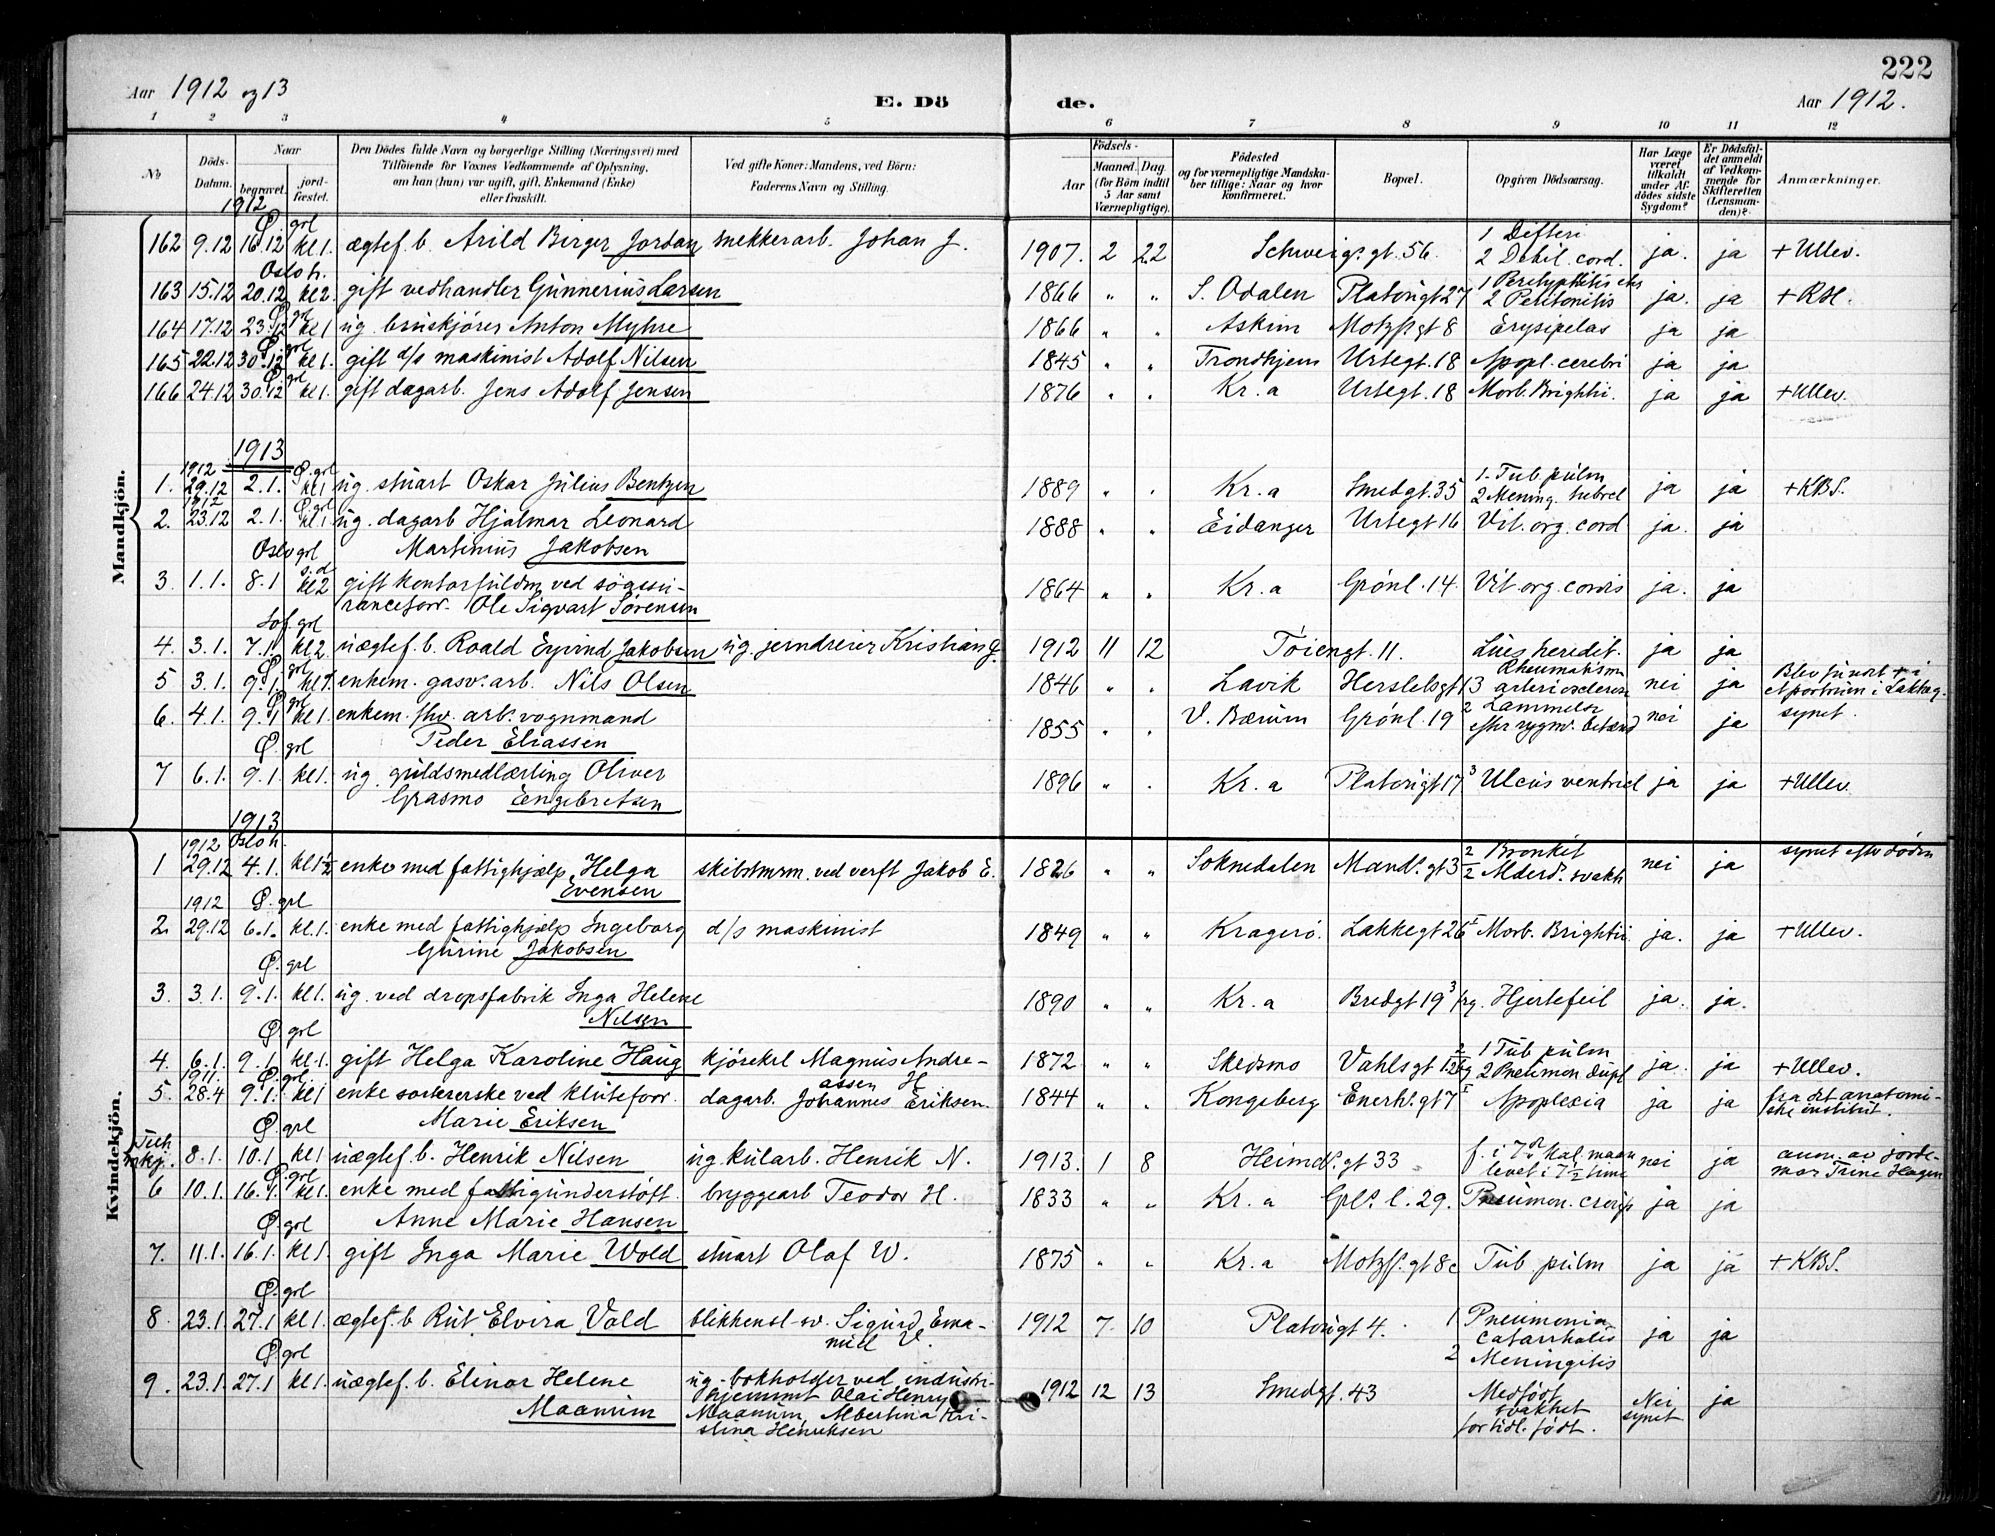 222
Aar 1912 og 13 E. Dö de. Aar 1912.
1 2 3 4 5 6 7 8 9 10 11 12
No Döds-Datum. Naar begravet. jordfæstet. Den Dödes fulde Navn og borgerlige Stilling (Næringsvei) med Tilföiende for Voxnes Vedkommende af Oplysning, om han (hun) var ugift, gift, Enkemand (Enke) eller fraskilt. Ved gifte Koner: Mandens, ved Börn: Faderens Navn og Stilling. Födsels- Aar Maaned. Dag. (for Börn indtil 5 Aar samt Værnepligtige). Födested og for værnepligtige Mandskaber tillige: Naar og hvor konfirmeret. Bopæl. Opgiven Dödsaarsag. Har Læge været tilkaldt under Afdödes sidste Sygdom? Er Dödsfaldet anmeldt af Vedkommende for Skifteretten (Lensmanden)? Anmærkninger.
Mandkjön.
1912
162 9.12 16.12 Ø. grl kl 1. ægtef. b. Arild Birger Jordan snekkerarb. Johan J. 1907. 2 22 Schweigs. gt. 56. 1 Difteri 2 Debil. cord. ja. ja + Ullev.
163 15.12 20.12 Oslo h. kl 2. gift vedhandler Gunnerius Larsen 1866 " " S. Odalen Platousgt 27 2 Peritonitis ja. ja + RH.
164 17.12 23.12 Ø. grl kl 1 ug. bruskjører Anton Myhre 1866 " " Askim Motzfs. gt 8 Erysipelas ja ja
165 22.12 30.12 Ø. grl kl 1. gift d/s maskinist Adolf Nilsen 1845 " " Trondhjem Urtegt. 18 Apopl. cerebri ja ja
166 24.12 30.12 Ø. grl kl 1. gift dagarb. Jens Adolf Jensen 1876 " " Kr.a Urtegt. 18 Morb. Brightii. ja ja + Ullev.
1913
1. 1912 29.12 2.1. Ø. grl kl 1 ug. stuart Oskar Julius Bentzen 1889 " " Kr.a Smedgt. 35 1. Tub pulm 2 Mening. tubrcl ja ja + KBS.
2. 1912 23.12 2.1. Ø. grl kl 1. ug. dagarb Hjalmar Leonard
Martinius Jakobsen 1888 " " Eidanger Urtegt 16 Vit. org. cord ja. ja
3. 1.1. 8.1 Oslo grl s.d kl 2 gift kontorfuldm. ved søassu-
ranceforr. Ole Sigvart Sørensen 1864 " " Kr.a Grønl. 14. Vit. org. cordis ja. ja
4. 3.1. 7.1. Sof. grl kl 2. uægtef. b. Roald Eyvind Jakobsen ug. jerndreier Kristian J. 1912 11 12 Tøiengt. 11. Lues heredit. ja ja
5 3.1. 9.1. Ø. grl kl 1. enkem. gasv. arb. Nils Olsen 1846 " " Lavik Herslebsgt 13 Rheumatism arterioscleros nei ja
6. 4.1. 9.1 Ø. grl kl 1. enkem. fhv. arb. vognmand
Peder Eliassen 1855 " " V. Bærum Grønl. 19 2 Lammelse efter rygm. betænd nei ja synet.
7 6.1. 9.1. Ø. grl kl 1. ug. guldsmedlærling Oliver
Grasmo Engebretsen 1896 " " Kr.a Platousgt 17 3 Ulcus ventricl ja ja + Ullev.
Kvindekjön.
1913
1 1912 29.12 4.1. Oslo h. kl 1½ enke med fattighjælp Helga
Evensen skibstmrm. ved verft Jakob E. 1826 " " Soknedalen Mands. gt 3 Bronkit Alderd. svakh nei ja synet efter døden
2. 1912 29.12 6.1. Ø. grl kl. 1. enke med fattighjælp Ingeborg
Gurine Jakobsen d/s maskinist 1849 " " Kragerø. Lakkegt 26 I Morb. Brightii. ja. ja + Ullev.
3. 3.1. 9.1. Ø. grl kl 1. ug. ved dropsfabrik Inga Helene
Nilsen 1890 " " Kr.a Bredgt 19 3 Hjertefeil ja. ja.
4. 6.1. 9.1. Ø grl kl. 1. gift Helga Karoline Haug kjørekrl Magnus Andre-
assen H 1872 " " Skedsmo Vahlsgt 1 1 Tub pulm 2 Pneumon dupl ja. ja + Ullev.
5. 1911 28.4 9.1. Ø. grl. kl 1 enke sortererske ved kluteforr.
Marie Eriksen dagarb. Johannes Eriksen. 1844 " " Kongsberg Enerh. gt 7 I Apoplexia ja ja fra det anatomi-
ske institut.
8.1. 10.1 Ø. grl kl 1 uægtef. b. Henrik Nilsen ug. kularb. Henrik N. 1913. 1 8 Heimds. gt 33 f. i 7de kal. maan levet i 7½ time nei ja anm. av jorde-
mor Trine Hagen
6 10.1. 16.1. Ø. grl kl 1. enke med fattigunderstøtt.
Anne Marie Hansen bryggearb Teodor H. 1833 " " Kr.a Grls. l. 29. Pneumon. croup ja ja
7. 11.1. 16.1. Ø. grl kl 1. gift Inga Marie Wold stuart Olaf W. 1875 " " Kr.a Motzfs. gt 8c Tub pulm ja ja + KBS.
8. 23.1. 27.1 Ø. grl kl 1. ægtef. b Rut Elvira Vold blikkensl. sv. Sigurd Ema-
nuel V. 1912 7. 10 Platousgt 4. 1 Pneumonia catarrhalis 2 Meningitis ja ja
9. 23.1. 27.1 Ø. grl kl 1. uægtef. b. Elinor Helene
Maanum ug. bokholder ved industri-
hjemmet Olai Henry
Maanum, Albertina Kri-
stina Henriksen 1912 12 13 Smedgt. 43 Medfødt svakhet for tidl. født. Nei synet ja